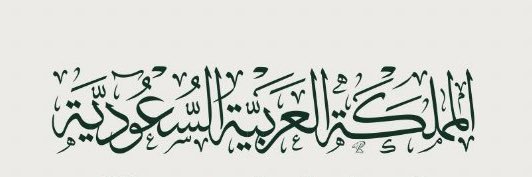 المملكة العَرَبيّة السُّعُوديَّة